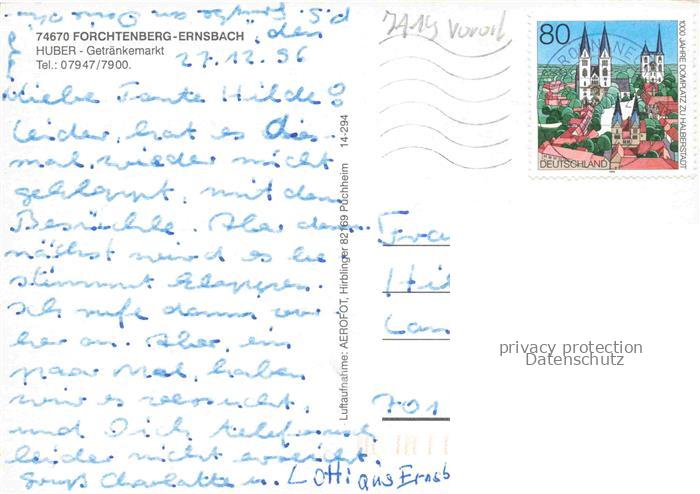 74670 FORCHTENBERG-ERNSBACH
HUBER - Getränkemarkt
Tel.: 07947/7900.
den
27.12.96
Liebe Tante Hilde!
Leider hat es dies-
mal wieder nicht
geklappt, mit dem
Besuchle. Aber dem-
nächst wird es be
stimmt klappen.
Ich rufe dann vor
her an. Aber ein
paar Mal haben
wir es versucht,
und Dich telefonisch
leider nicht erreicht
Gruß Charlotte u. Lotti aus Ernsb
P.S.
Luftaufnahme: AEROFOT, Hirblinger 82169 Puchheim 14-294
7419
80
DEUTSCHLAND
1000 JAHRE DOMPLATZ ZU HALBERSTADT
Frau
Hil
Lan
701
privacy protection
Datenschutz